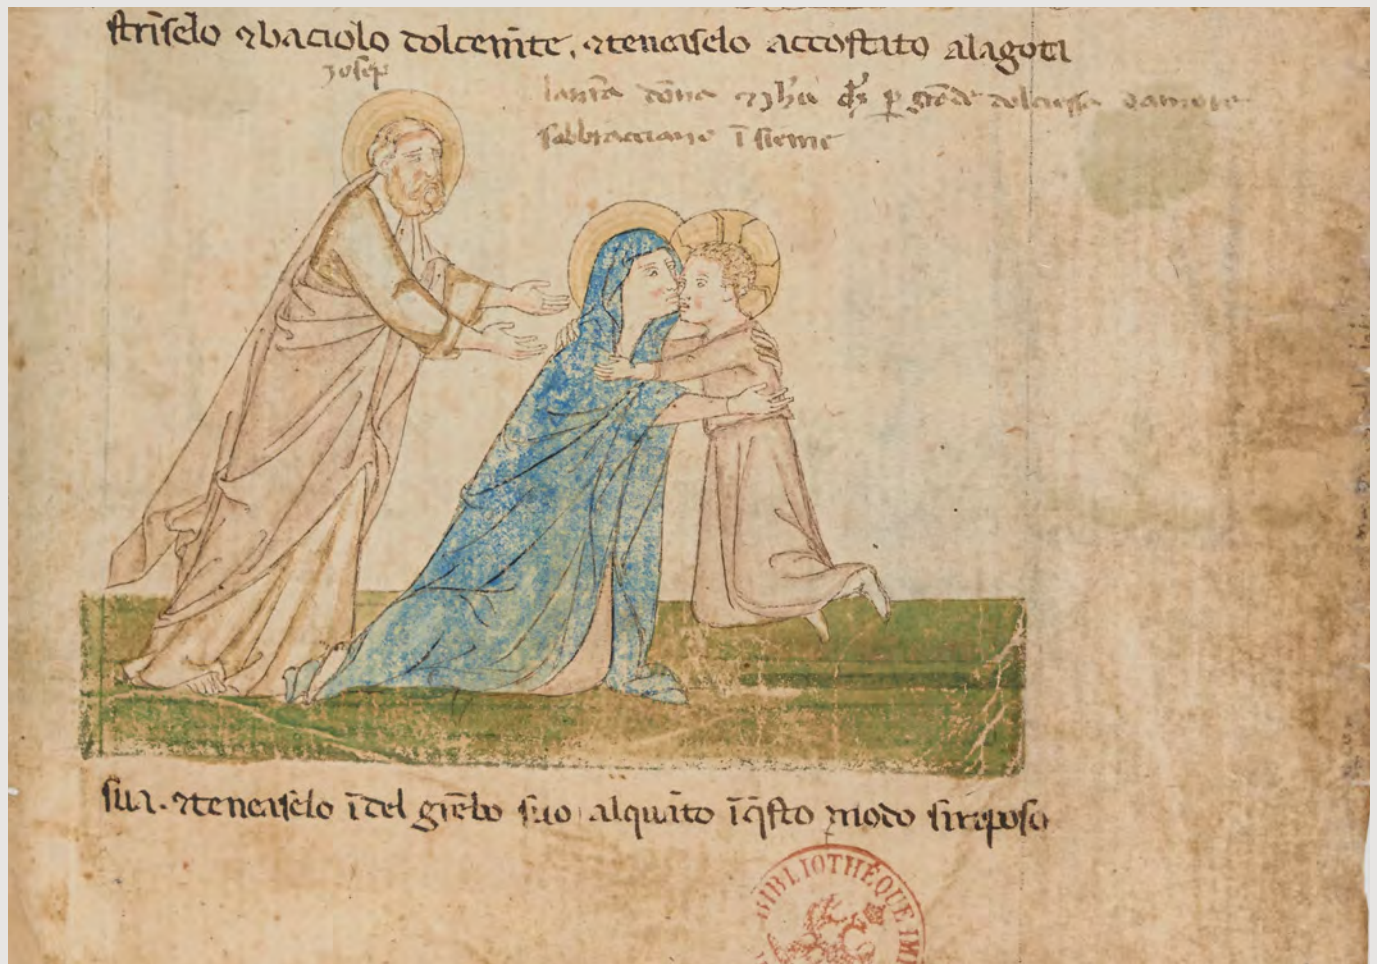 strīselo ⁊ baciolo dolcem̄te. ⁊ teneaselo accostato alagota
Josep
lanr̄a dōna ⁊ yh̄u p̱ grāde dolcieça ⁊ amore
sabbracciano ī sieme
sua. ⁊ teneaselo ī del grēbo suo alquāto ī q̄sto modo si reposo
BIBLIOTHÈQUE IMP